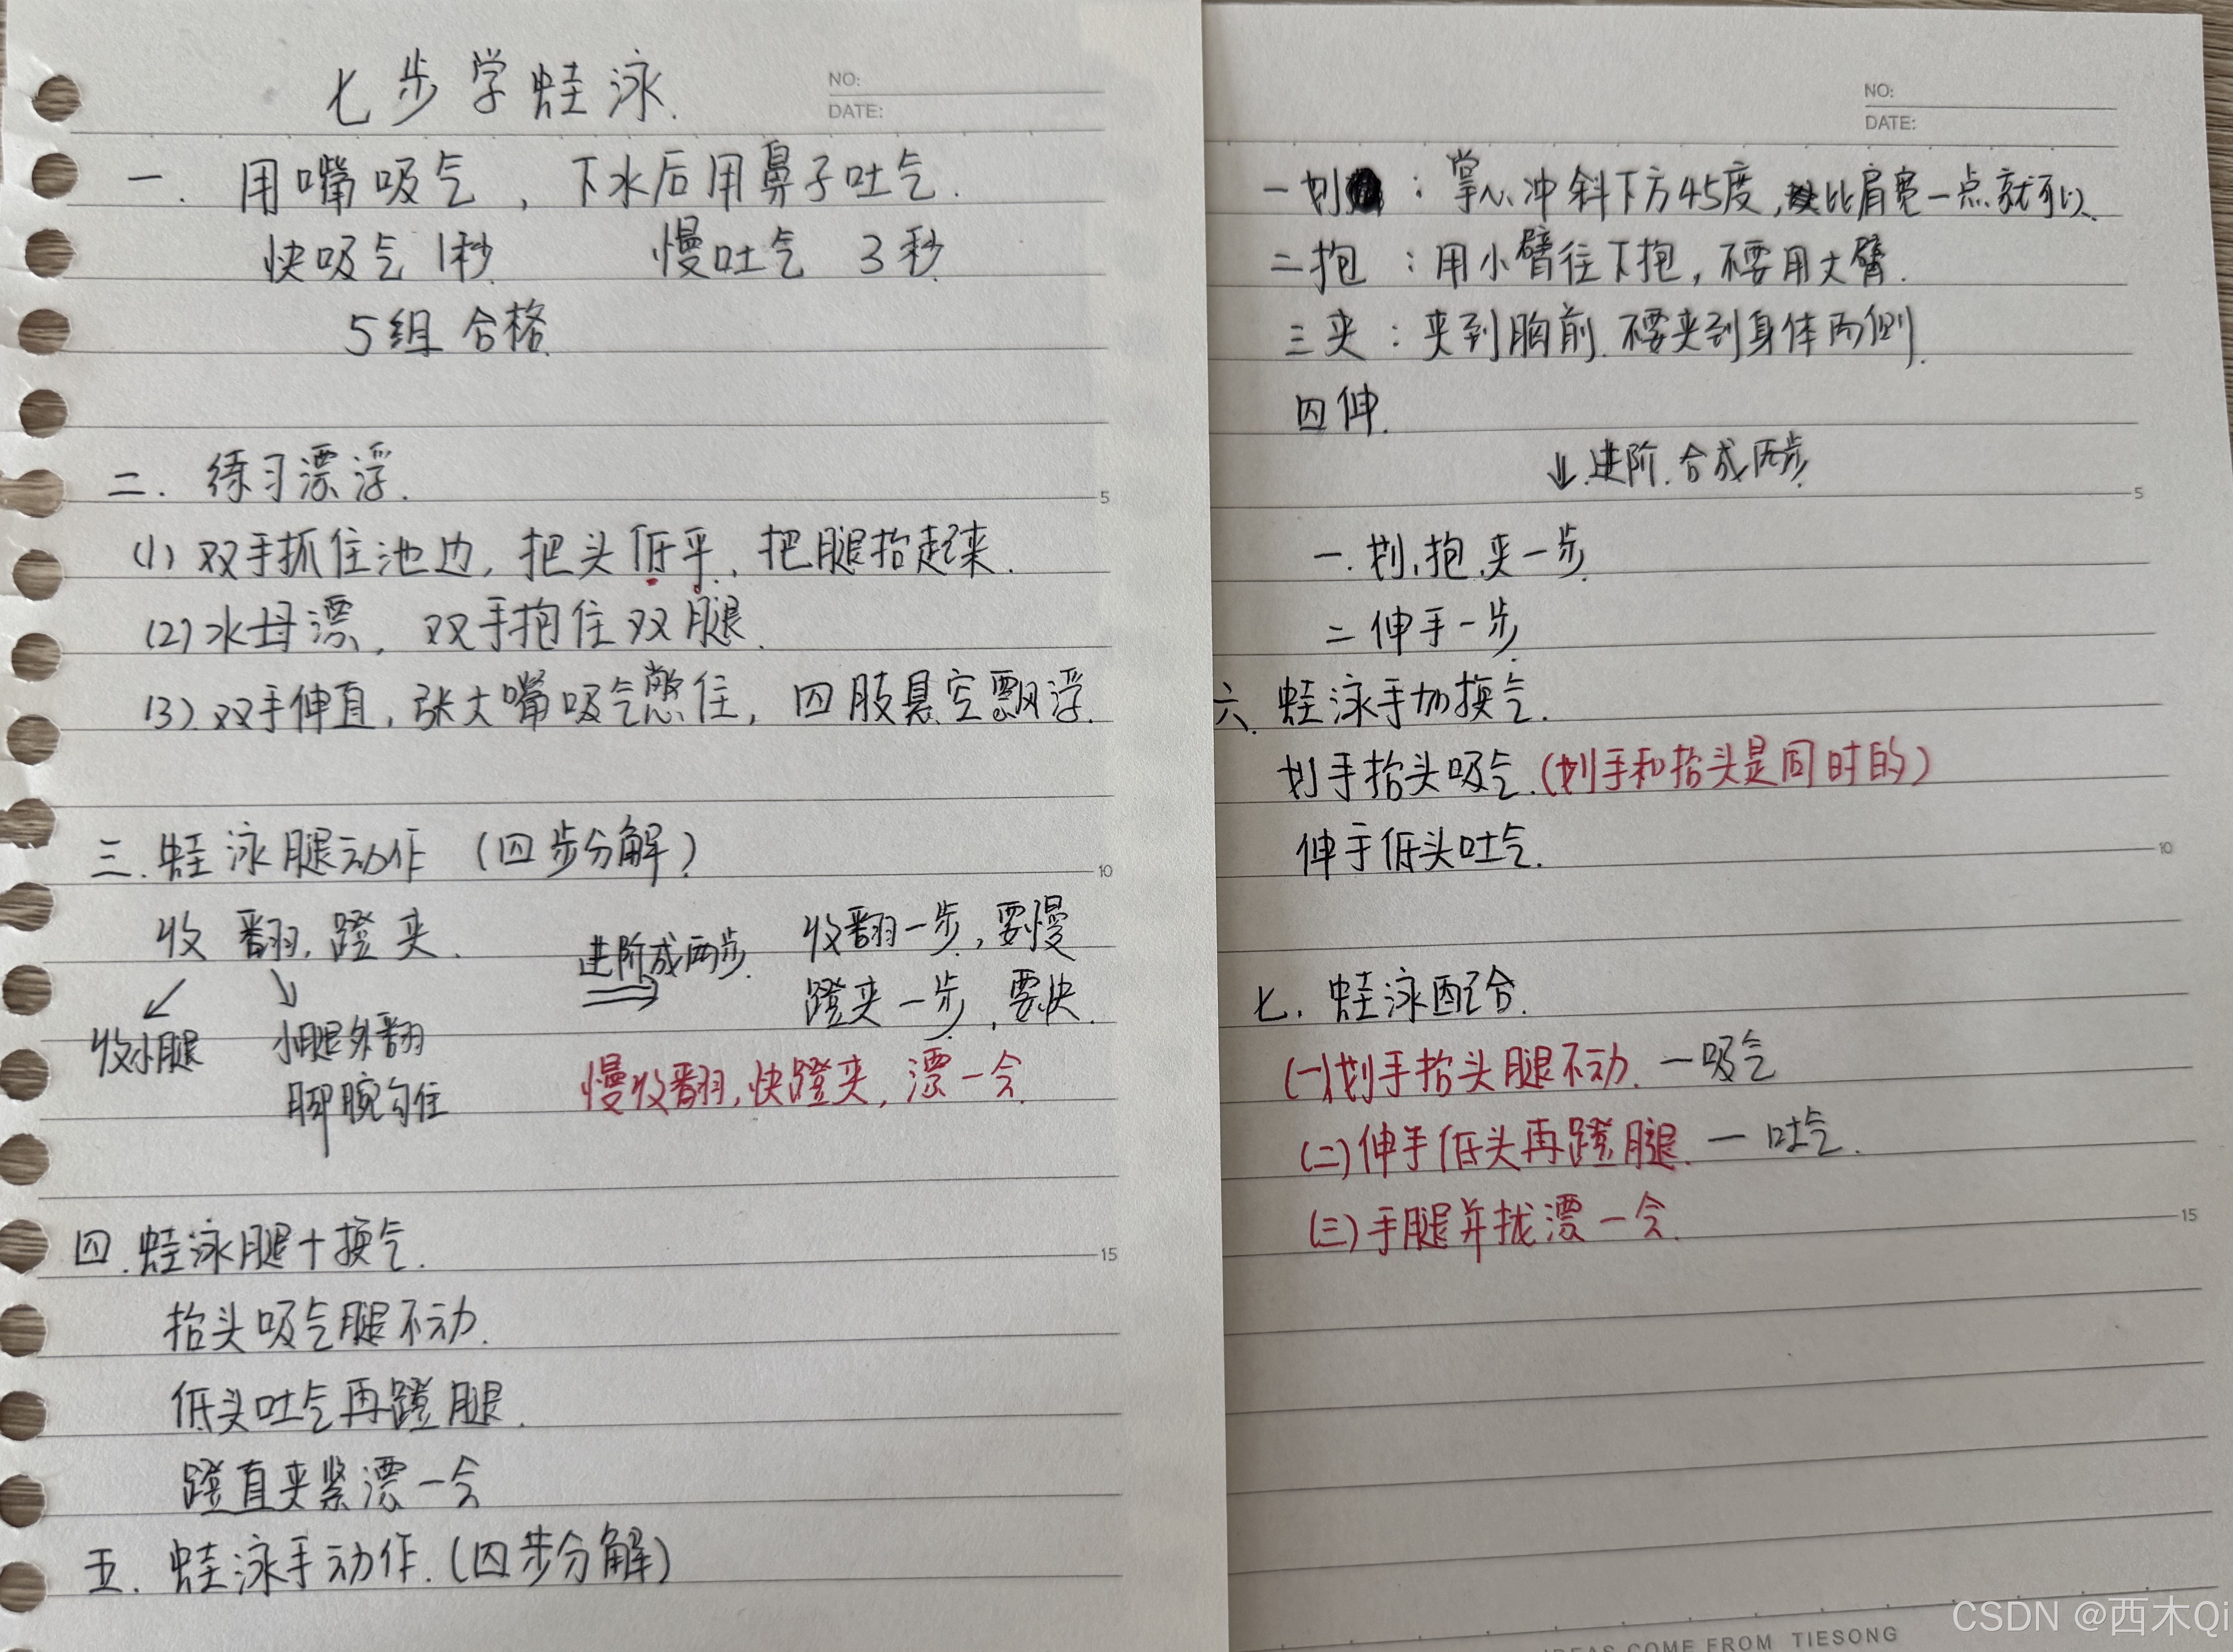 七步学蛙泳.
NO:
DATE:
一. 用嘴吸气，下水后用鼻子吐气.
快吸气 1秒 慢吐气 3秒
5组 合格
二. 练习漂浮.
(1) 双手抓住池边, 把头低平, 把腿抬起来.
(2) 水母漂, 双手抱住双腿.
(3) 双手伸直, 张大嘴吸气憋住, 四肢悬空飘浮.
5
三. 蛙泳腿动作 (四步分解)
10
收 翻, 蹬 夹.
↙ ↘
收小腿
小腿外翻
脚腕勾住
进阶成两步.
收翻一步, 要慢
蹬夹一步, 要快.
慢收翻, 快蹬夹, 漂一会.
四. 蛙泳腿+换气.
15
抬头吸气腿不动.
低头吐气再蹬腿.
蹬直夹紧漂一会
五. 蛙泳手动作. (四步分解)
NO:
DATE:
一划 : 掌心冲斜下方45度, 比肩宽一点就可以.
二抱 : 用小臂往下抱, 不要用大臂.
三夹 : 夹到胸前. 不要夹到身体两侧.
四伸.
↓ 进阶. 合成两步
5
一. 划, 抱, 夹一步.
二 伸手一步.
六. 蛙泳手加换气.
划手抬头吸气. (划手和抬头是同时的)
伸手低头吐气.
10
七. 蛙泳配合.
(一)划手抬头腿不动. —吸气
(二)伸手低头再蹬腿. — 吐气.
(三)手腿并拢漂一会.
15
IDEAS COME FROM TIESONG
CSDN @西木Qi